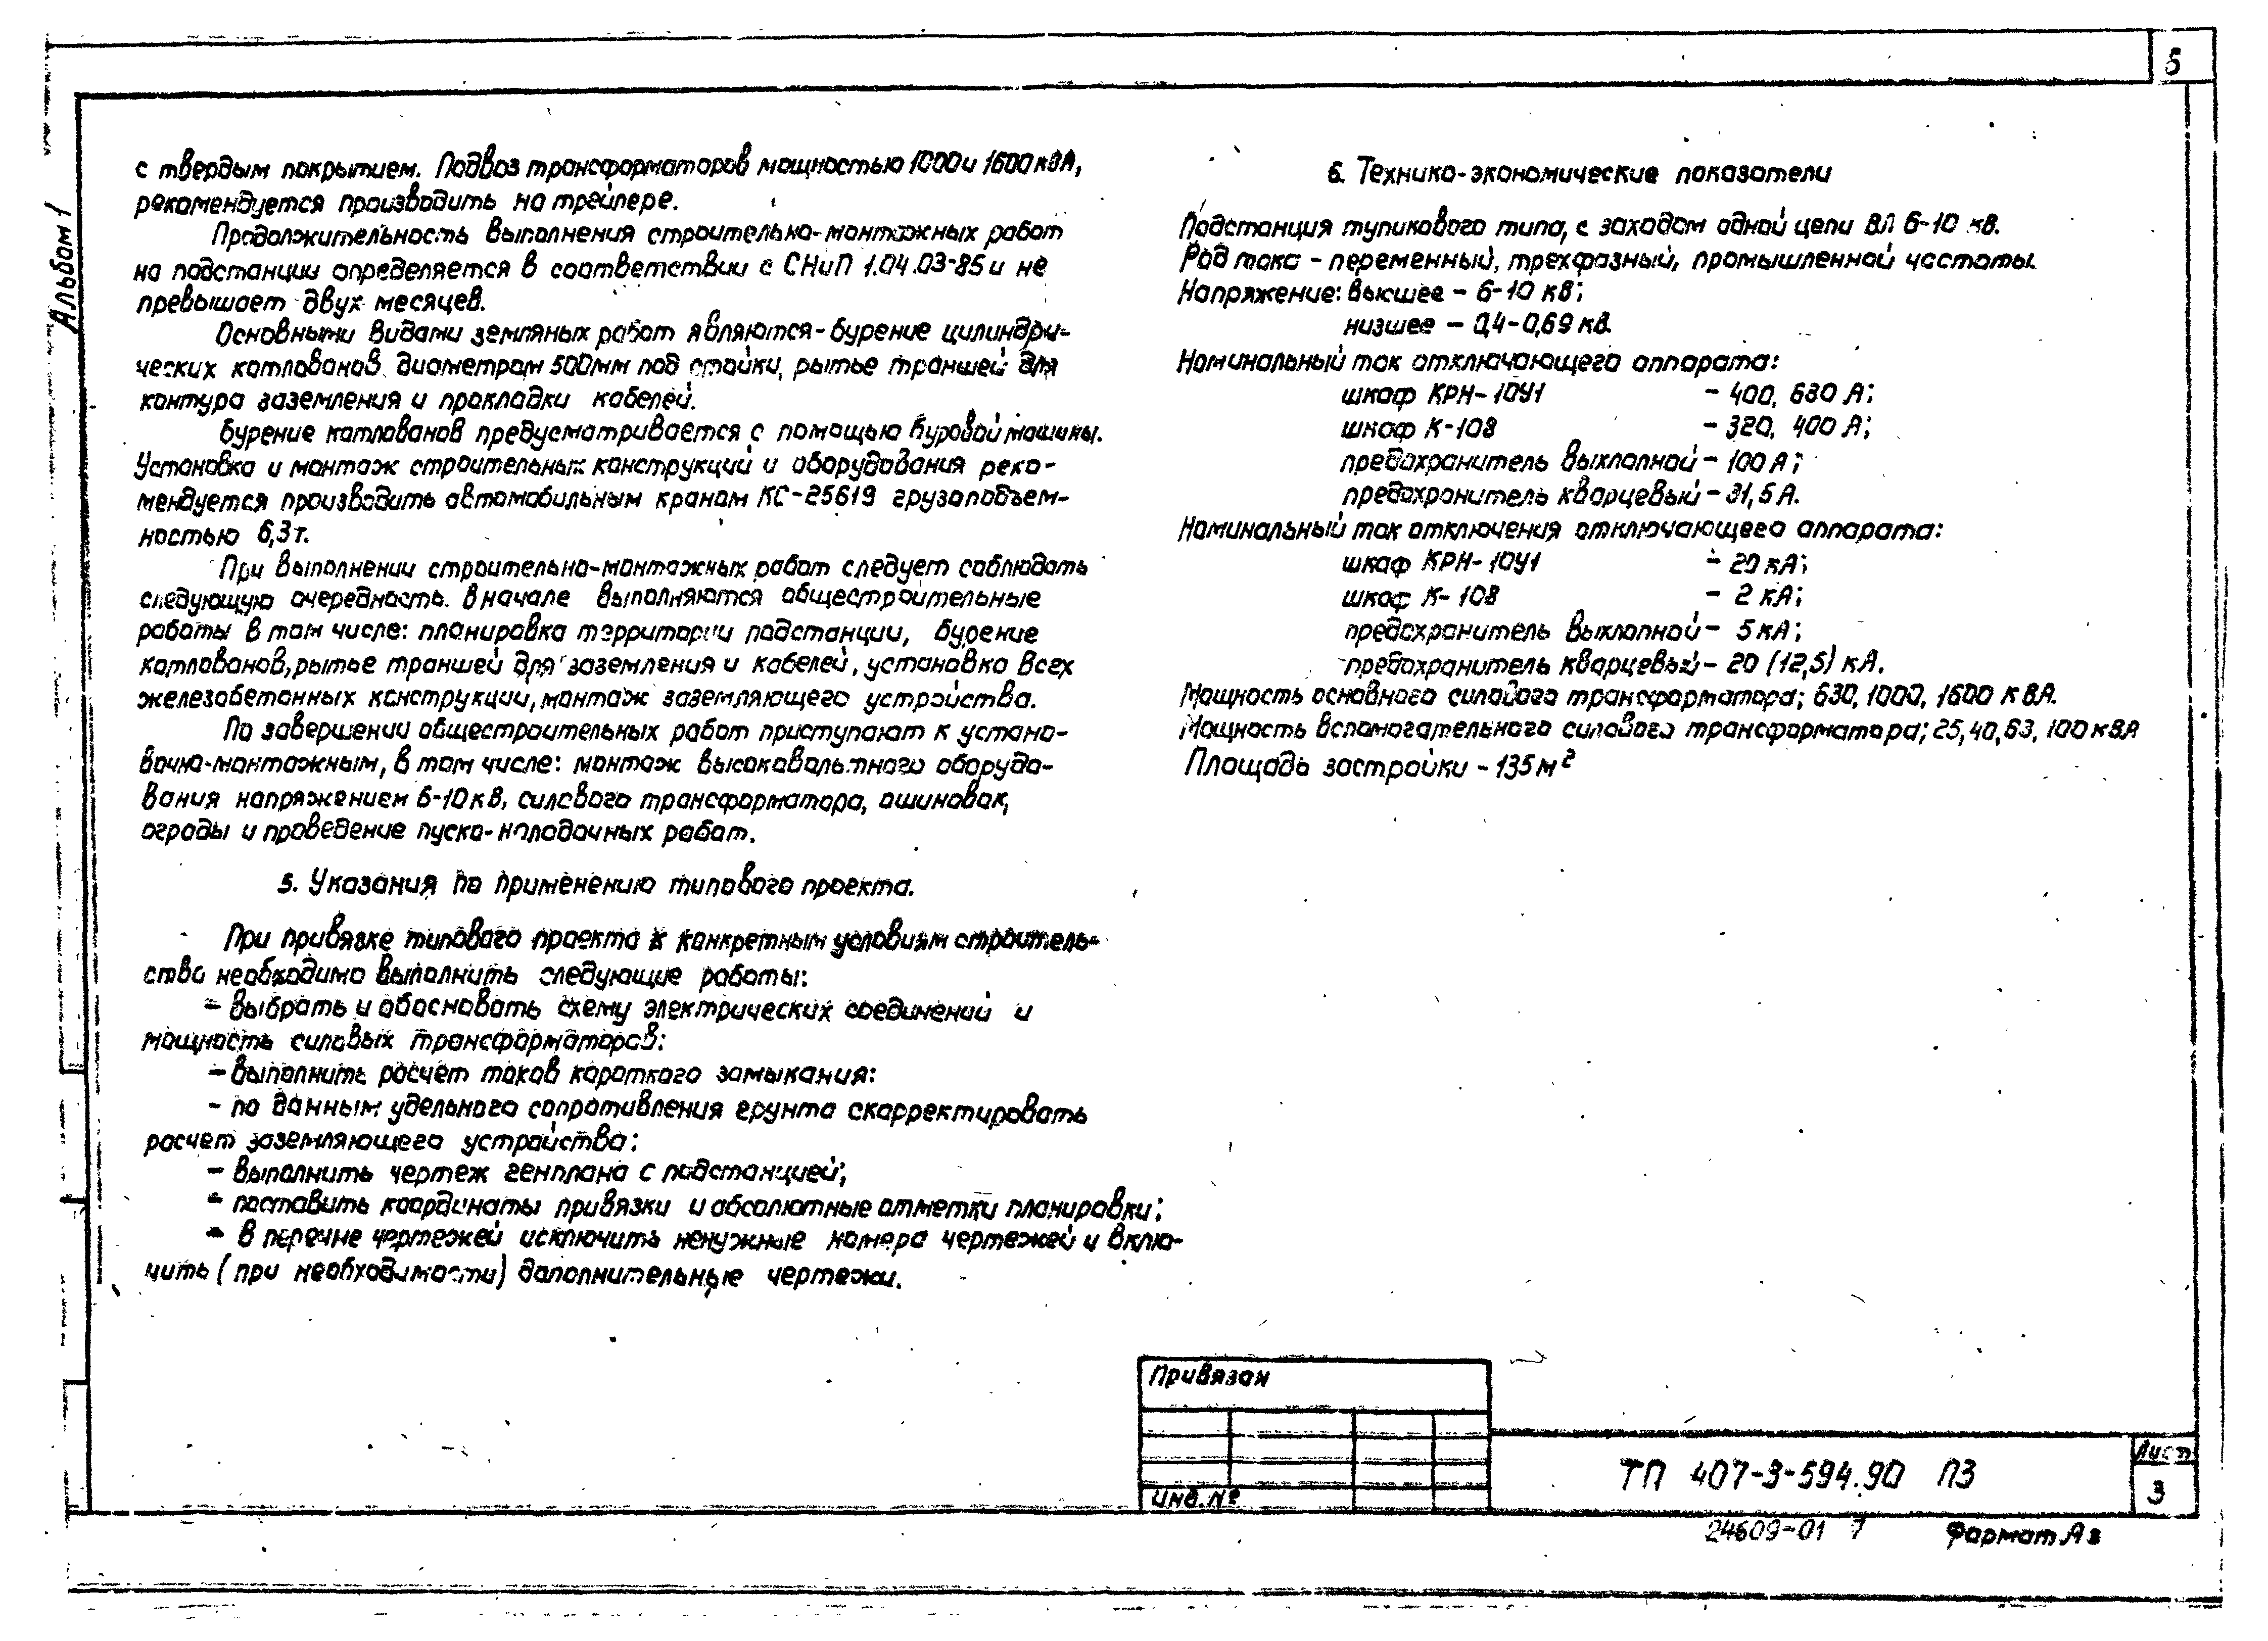 5
Альбом 1
с твердым покрытием. Подвоз трансформаторов мощностью 1000 и 1600 кВА,
рекомендуется производить на трейлере.
Продолжительность выполнения строительно-монтажных работ
на подстанции определяется в соответствии с СНиП 1.04.03-85 и не
превышает двух месяцев.
Основными видами земляных работ являются - бурение цилиндри-
ческих котлованов диаметром 500мм под стойки, рытье траншей для
контура заземления и прокладки кабелей.
Бурение котлованов предусматривается с помощью буровой машины.
Установка и монтаж строительных конструкций и оборудования реко-
мендуется производить автомобильным краном КС-25619 грузоподъем-
ностью 6,3т.
При выполнении строительно-монтажных работ следует соблюдать
следующую очередность. Вначале выполняются общестроительные
работы в том числе: планировка территории подстанции, бурение
котлованов, рытье траншей для заземления и кабелей, установка всех
железобетонных конструкций, монтаж заземляющего устройства.
По завершении общестроительных работ приступают к устано-
вочно-монтажным, в том числе: монтаж высоковольтного оборудо-
вания напряжением 6-10кВ, силового трансформатора, ошиновок,
ограды и проведение пуско-наладочных работ.
5. Указания по применению типового проекта.
При привязке типового проекта к конкретным условиям строитель-
ства необходимо выполнить следующие работы:
- выбрать и обосновать схему электрических соединений и
мощность силовых трансформаторов:
- выполнить расчет токов короткого замыкания:
- по данным удельного сопротивления грунта скорректировать
расчет заземляющего устройства:
- выполнить чертеж генплана с подстанцией;
- поставить координаты привязки и абсолютные отметки планировки;
- в перечне чертежей исключить ненужные номера чертежей и вклю-
чить (при необходимости) дополнительные чертежи.
6. Технико-экономические показатели
Подстанция тупикового типа, с заходом одной цепи ВЛ 6-10 кВ.
Род тока - переменный, трехфазный, промышленной частоты.
Напряжение: высшее - 6-10 кВ;
низшее - 0,4-0,69 кВ.
Номинальный ток отключающего аппарата:
шкаф КРН-10У1 - 400, 630 А;
шкаф К-108 - 320, 400 А;
предохранитель выхлопной - 100 А;
предохранитель кварцевый - 31,5 А.
Номинальный ток отключения отключающего аппарата:
шкаф КРН-10У1 - 20 кА;
шкаф К-108 - 2 кА;
предохранитель выхлопной - 5 кА;
предохранитель кварцевый - 20 (12,5) кА.
Мощность основного силового трансформатора; 630, 1000, 1600 кВА.
Мощность вспомогательного силового трансформатора; 25, 40, 63, 100 кВА
Площадь застройки - 135 м²
Привязан
Инв. №
ТП 407-3-594.90 ПЗ
Лист
3
24609-01 7
Формат А3